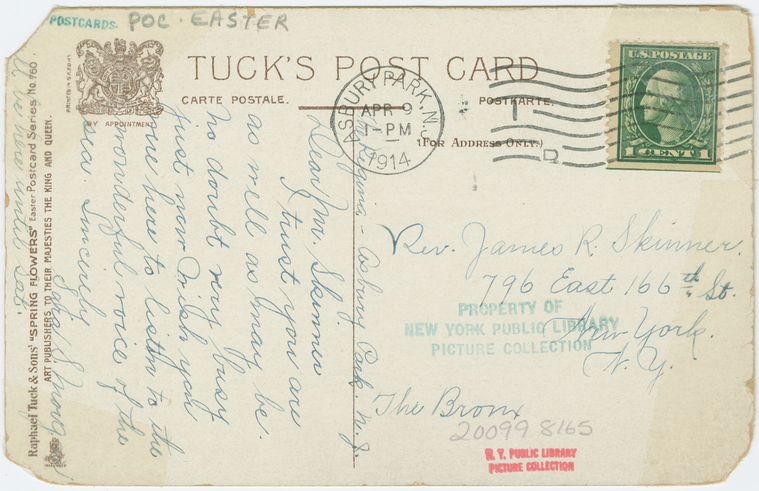 POSTCARDS
POC. EASTER
PRINTED IN SAXONY
BY APPOINTMENT
TUCK'S POST CARD
CARTE POSTALE.
POSTKARTE.
(For Address Only.)
ASBURY PARK, N.J.
APR 9
1-PM
1914
U.S. POSTAGE
1 CENT 1
Asbury Park. N.J.
Dear Mr. Skinner
I trust you are
as well as may be.
No doubt very busy
just now. Wish you
were here to listen to the
wonderful voice of the
sea. Sincerely
until Sat.
Raphael Tuck & Sons' "SPRING FLOWERS" Easter Postcard Series No. 760.
ART PUBLISHERS TO THEIR MAJESTIES THE KING AND QUEEN.
Rev. James R. Skinner.
796 East 166th St.
New York.
N.Y.
The Bronx
PROPERTY OF
NEW YORK PUBLIC LIBRARY
PICTURE COLLECTION
20099 8165
N. Y. PUBLIC LIBRARY
PICTURE COLLECTION